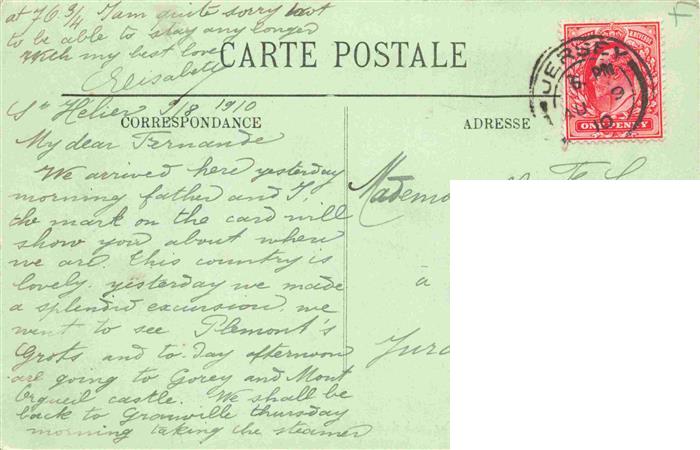 at 7h 3/4 I am quite sorry not
to be able to stay any longer
With my best love
Elisabeth
CARTE POSTALE
JERSEY
6 PM
AU 9
10
ONE PENNY
St Hélier 9/8 1910
CORRESPONDANCE
ADRESSE
My dear Fernande
We arrived here yesterday
morning father and I,
the mark on the card will
show you about where
we are. This country is
lovely. yesterday we made
a splendid excursion, we
went to see Plemont's
Grots and to day afternoon
are going to Gorey and Mont
Orgueil castle. We shall be
back to Granville thursday
morning taking the steamer
Mademo
à